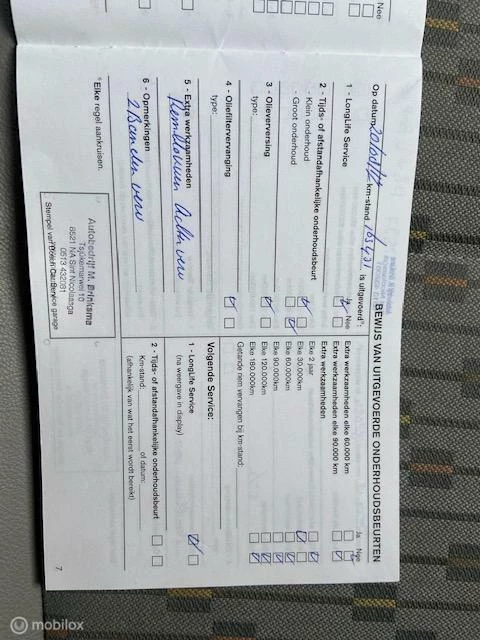 Nee
BEWIJS VAN UITGEVOERDE ONDERHOUDSBEURTEN
Op datum km-stand 165431 is uitgevoerd*:
Ja Nee
1 - LongLife Service
2 - Tijds- of afstandafhankelijke onderhoudsbeurt
- Klein onderhoud
- Groot onderhoud
3 - Olieverversing
type:
4 - Oliefiltervervanging
type:
5 - Extra werkzaamheden
Remblokken Achter verv
6 - Opmerkingen
2 Banden verv
*Elke regel aankruisen.
Autobedrijf M. Brinksma
Tsjûkemarwei 10
8521 NA Sint Nicolaasga
0513 432081
Stempel van Bosch Car Service garage
Ja Nee
Extra werkzaamheden elke 60.000 km
Extra werkzaamheden elke 90.000 km
Extra werkzaamheden
Elke 2 jaar
Elke 30.000km
Elke 60.000km
Elke 90.000km
Elke 120.000km
Elke 180.000km
Getande riem vervangen bij km-stand:
Volgende Service:
1 - LongLife Service
(na weergave in display)
2 - Tijds- of afstandafhankelijke onderhoudsbeurt
Km-stand: of datum:
(afhankelijk van wat het eerst wordt bereikt)
7
mobilox